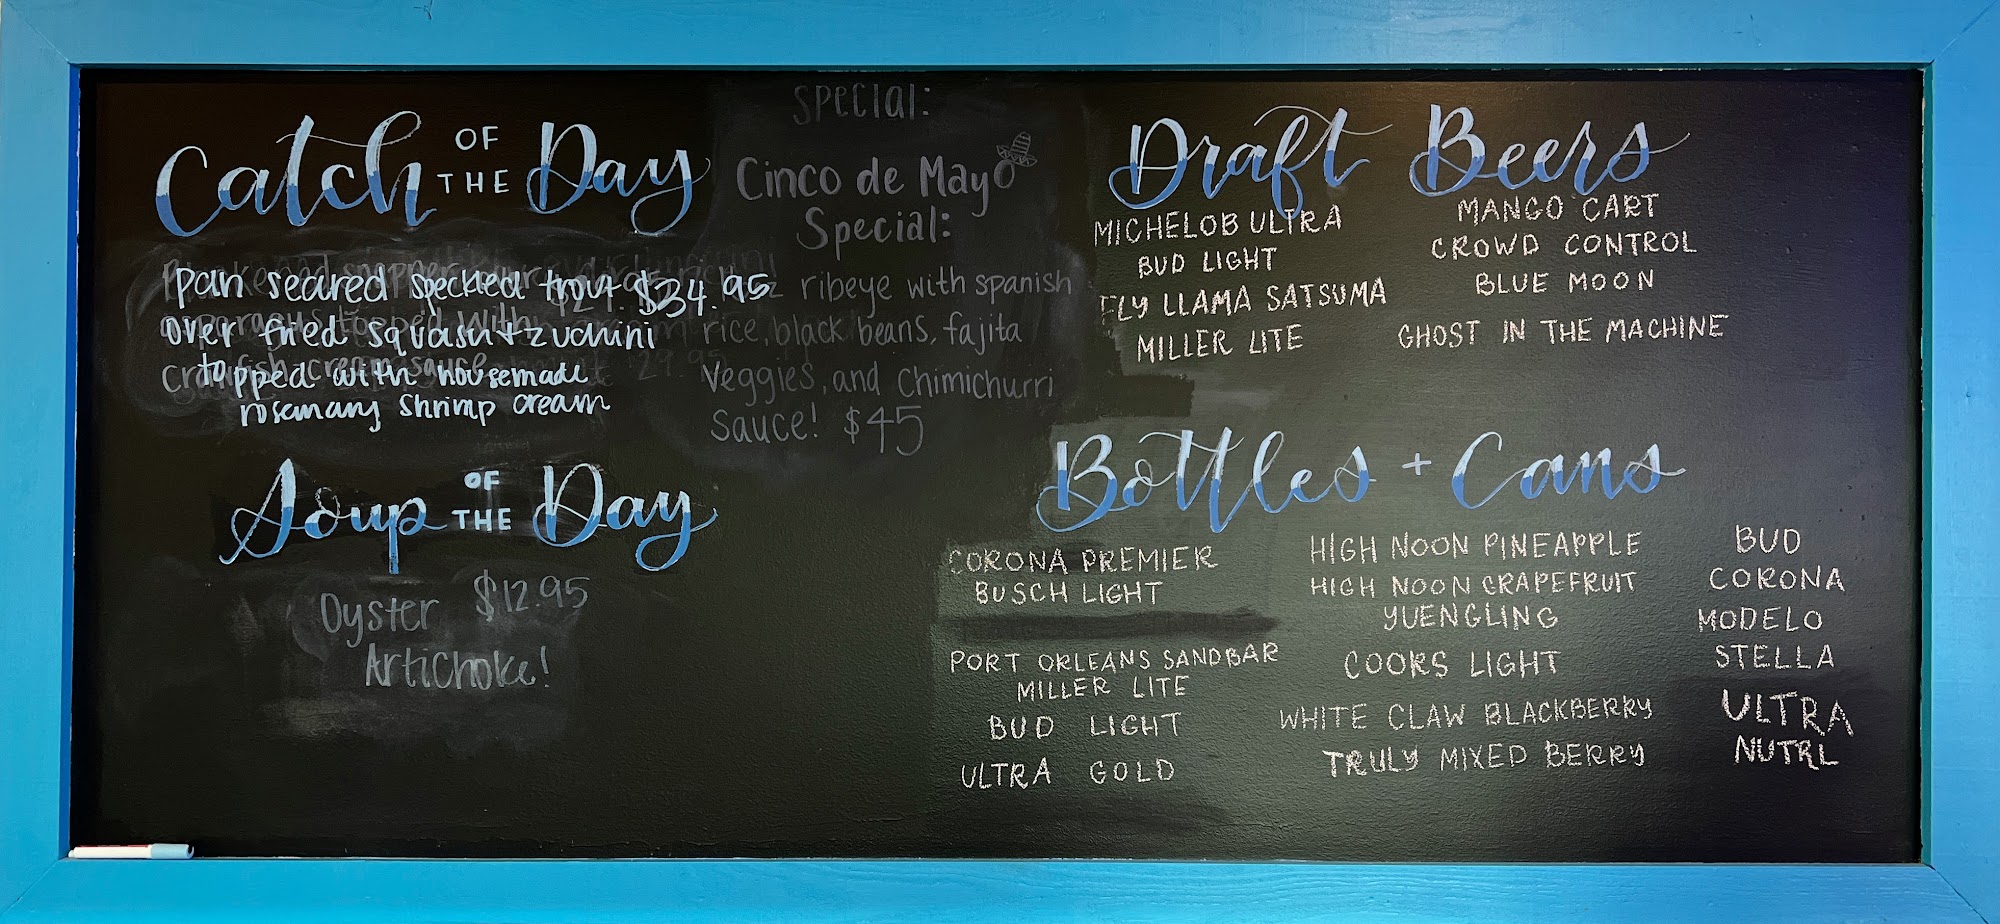 Catch OF THE Day
pan seared speckled trout $34.95
over fried squash + zuchini
topped with housemade
rosemary shrimp cream
Soup OF THE Day
Oyster $12.95
Artichoke!
Special:
Cinco de Mayo
Special:
ribeye with spanish
rice, black beans, fajita
veggies, and chimichurri
sauce! $45
Draft Beers
MICHELOB ULTRA
BUD LIGHT
FLY LLAMA SATSUMA
MILLER LITE
MANGO CART
CROWD CONTROL
BLUE MOON
GHOST IN THE MACHINE
Bottles + Cans
CORONA PREMIER
BUSCH LIGHT
PORT ORLEANS SANDBAR
MILLER LITE
BUD LIGHT
ULTRA GOLD
HIGH NOON PINEAPPLE
HIGH NOON GRAPEFRUIT
YUENGLING
COORS LIGHT
WHITE CLAW BLACKBERRY
TRULY MIXED BERRY
BUD
CORONA
MODELO
STELLA
ULTRA
NUTRL